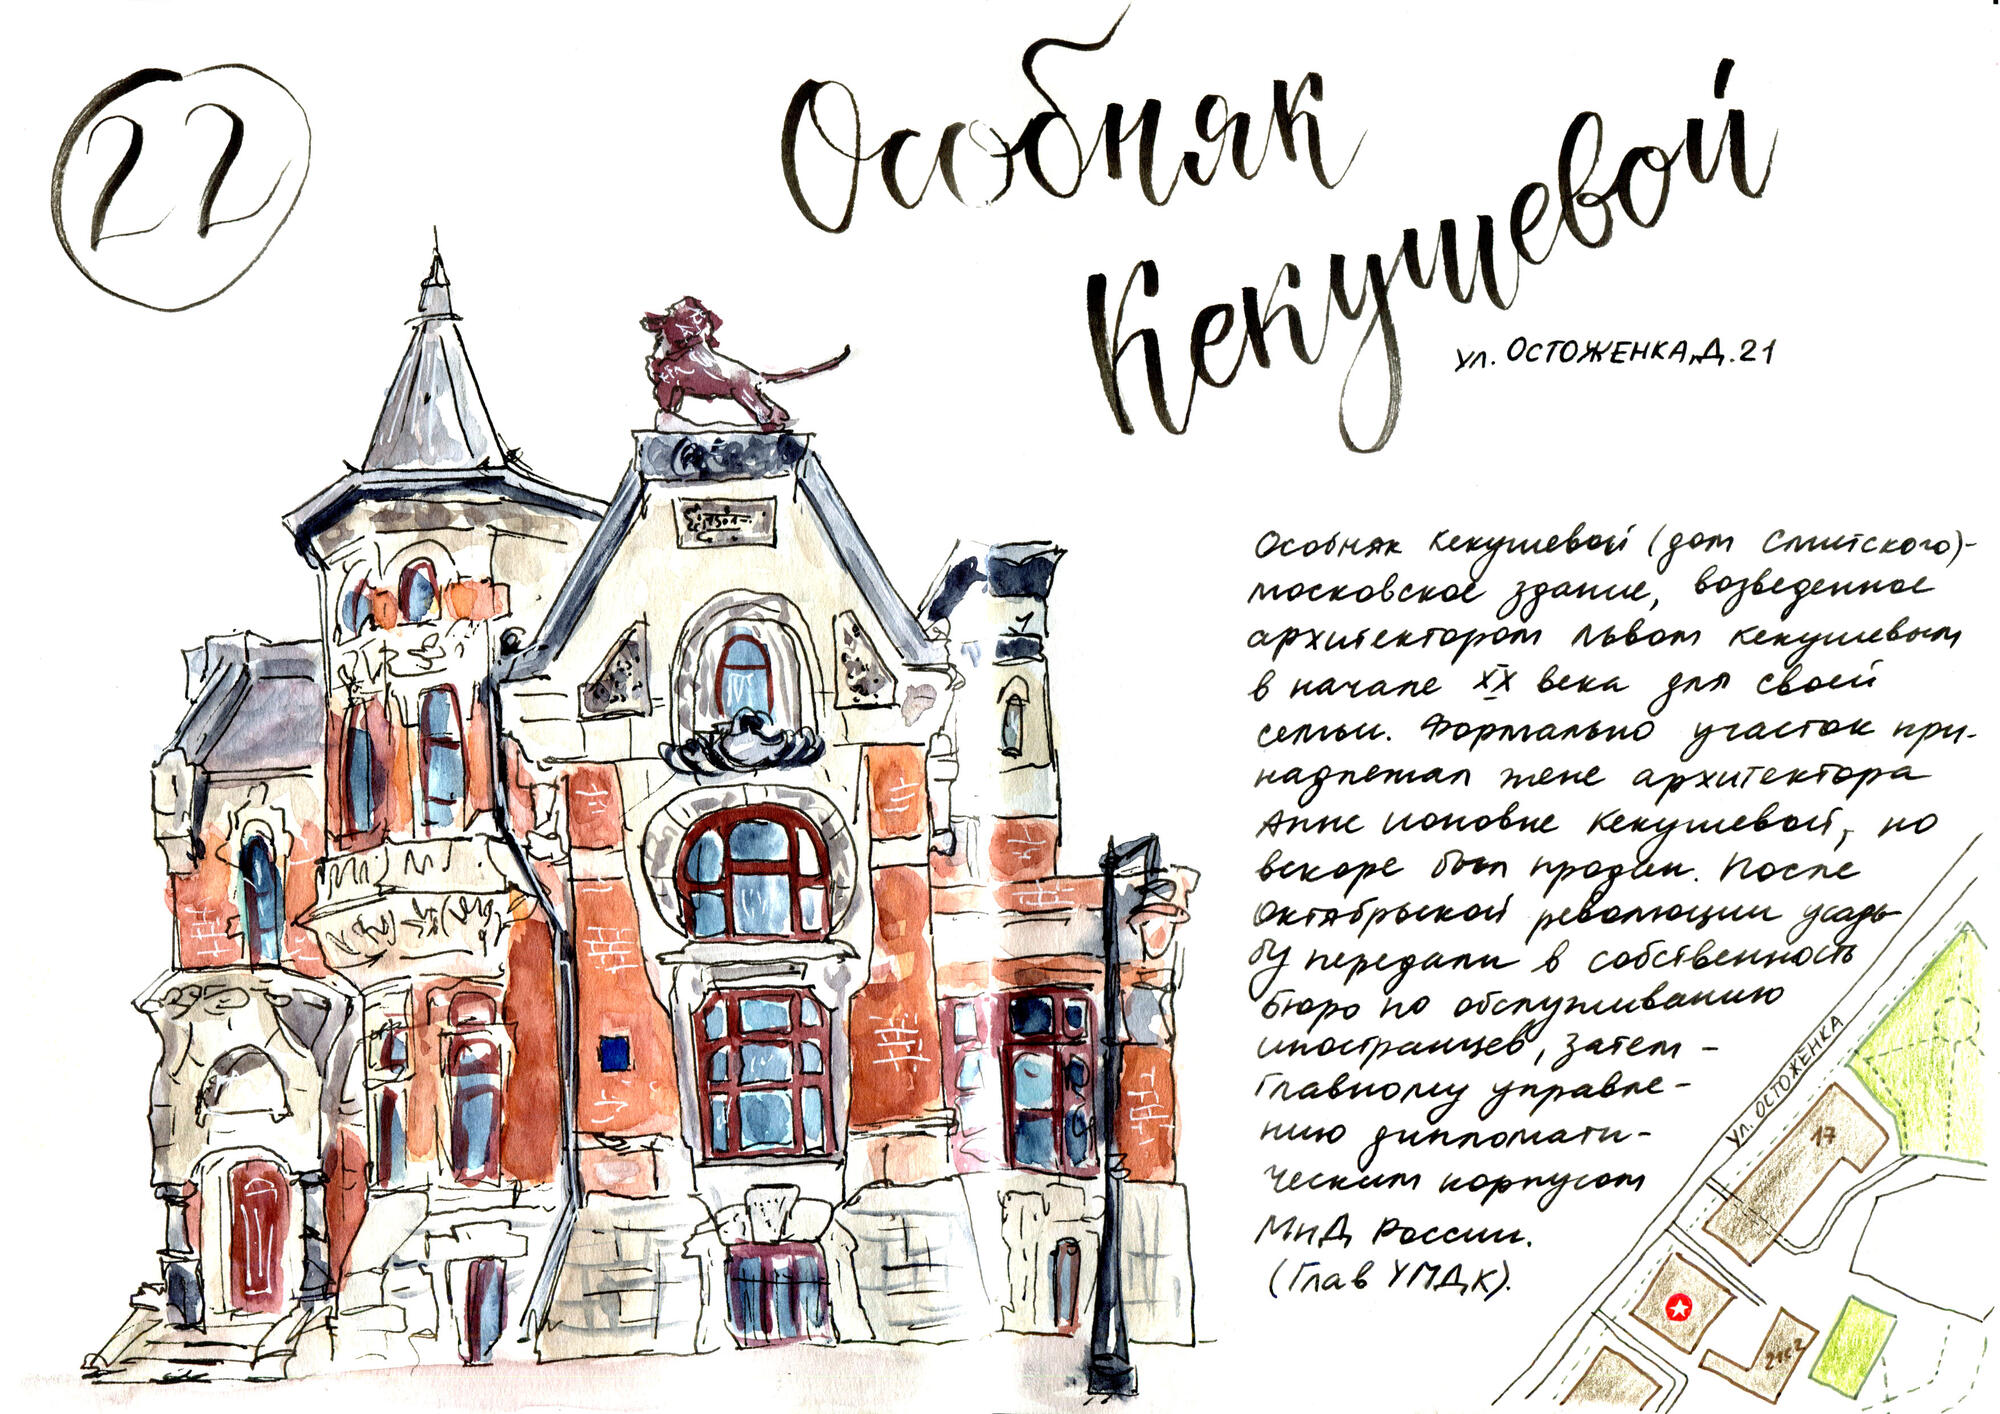 22
Особняк
Кекушевой
ул. ОСТОЖЕНКА, Д. 21
Особняк Кекушевой (дом Смитского)-
московское здание, возведенное
архитектором Львом Кекушевым
в начале XX века для своей
семьи. Формально участок при-
надлежал жене архитектора
Анне Ионовне Кекушевой, но
вскоре был продан. После
Октябрьской революции усадь-
бу передали в собственность
Бюро по обслуживанию
иностранцев, затем -
Главному управле-
нию дипломати-
ческим корпусом
МИД России.
(ГлавУПДК).
УЛ. ОСТОЖЕНКА
17
21с2